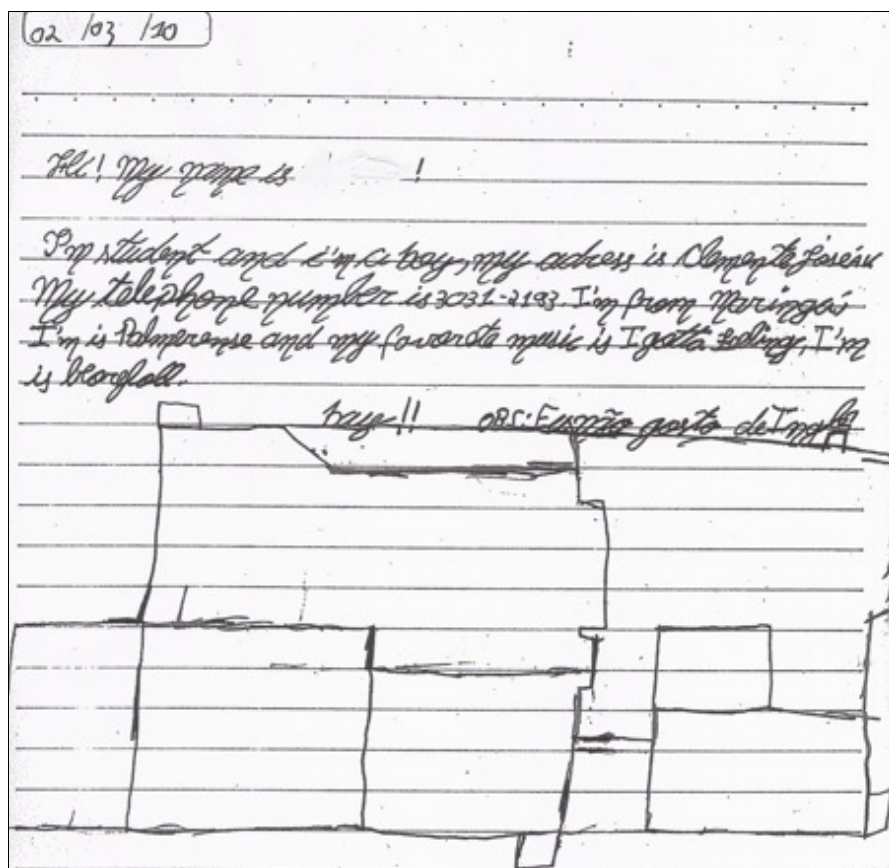 02 /03 /10
Hi! My name is !
I'm student and i'm a boy, my adress is Clemente
My telephone number is 3031-2193. I'm from Maringá
I'm is Palmerense and my favorote music is I gotta, I'm
is
bay!! OBS: Eu não gosto de